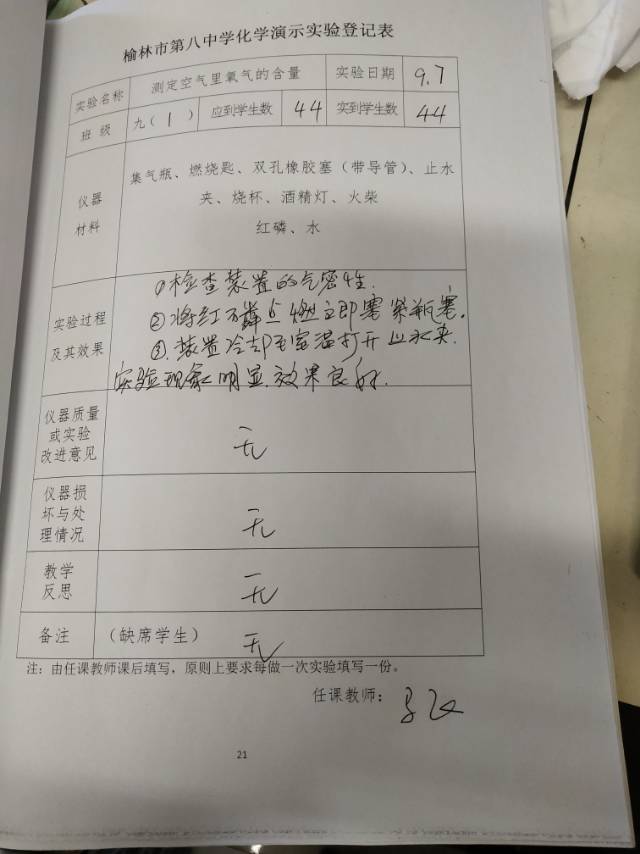 榆林市第八中学化学演示实验登记表
实验名称 测定空气里氧气的含量 实验日期 9.7
班 级 九( 1 ) 应到学生数 44 实到学生数 44
仪器
材料
集气瓶、燃烧匙、双孔橡胶塞（带导管）、止水
夹、烧杯、酒精灯、火柴
红磷、水
实验过程
及其效果
①检查装置的气密性.
②将红磷点燃立即塞紧瓶塞.
③.装置冷却至室温打开止水夹.
实验现象明显.效果良好.
仪器质量
或实验
改进意见
无
仪器损
坏与处
理情况
无
教学
反思
无
备注 （缺席学生） 无
注：由任课教师课后填写，原则上要求每做一次实验填写一份。
任课教师：
21